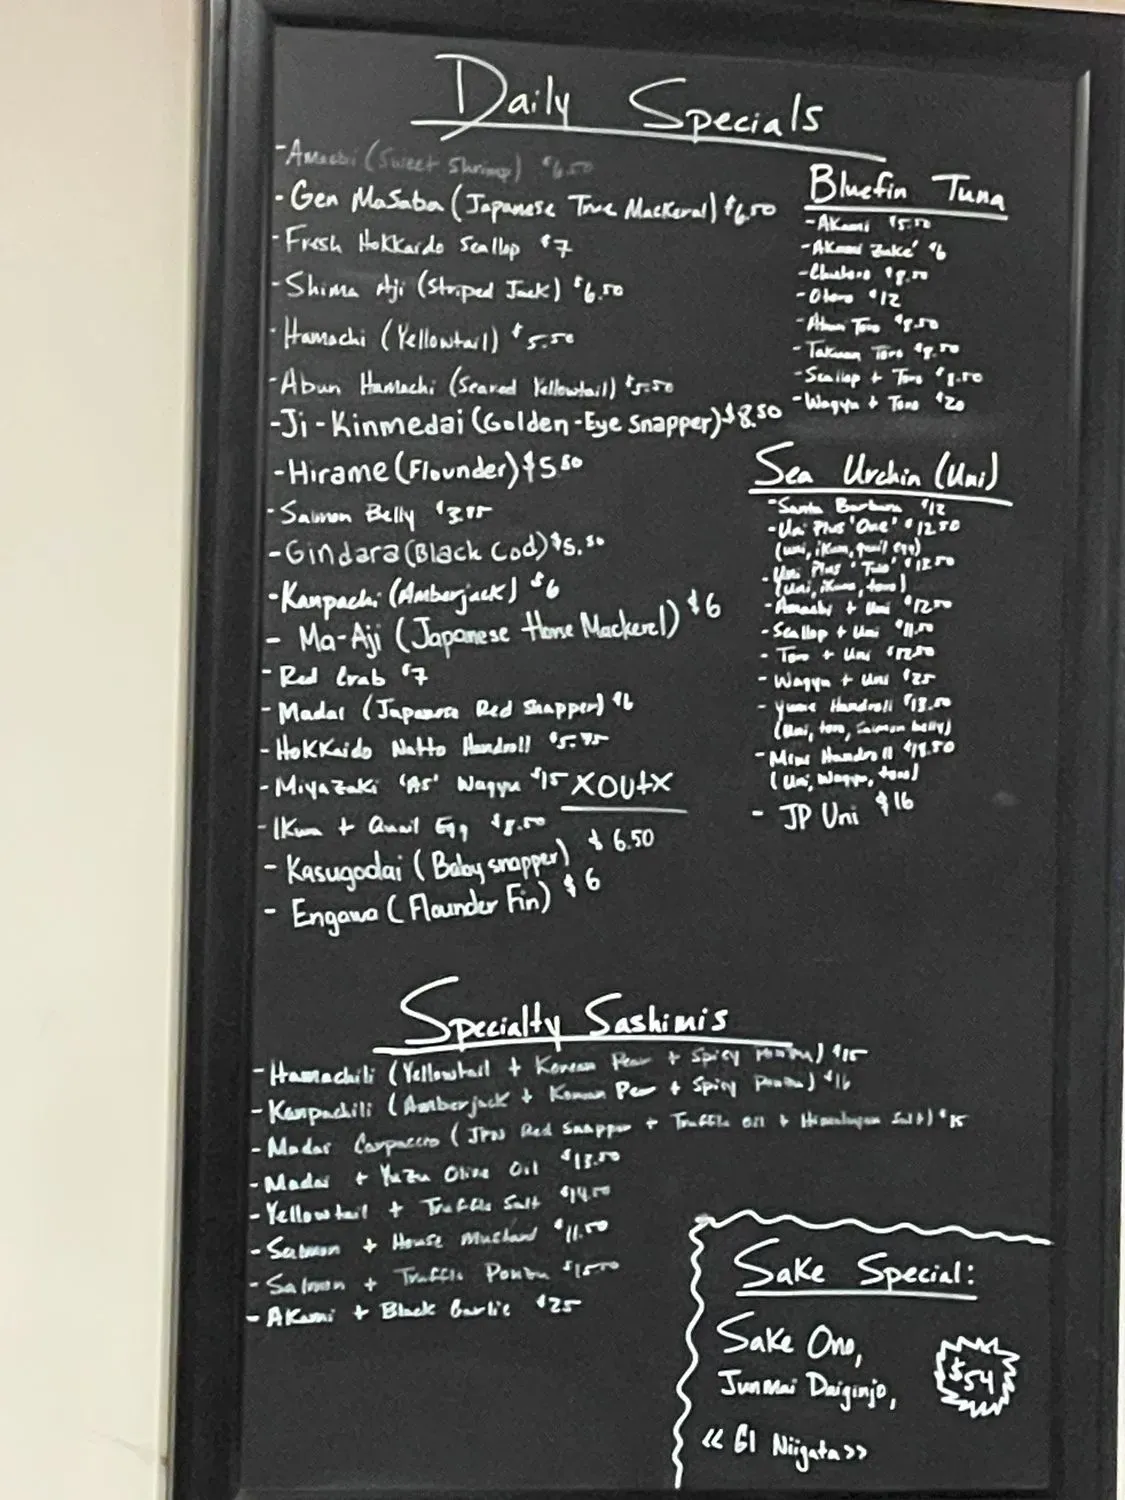 Daily Specials
-Amaebi (Sweet Shrimp) $6.50
- Gen MaSaba (Japanese True Mackeral) $6.50
- Fresh Hokkaido Scallop $7
- Shima Aji (Striped Jack) $6.50
- Hamachi (Yellowtail) $5.50
- Abun Hamachi (Seared Yellowtail) $5.50
-Ji-Kinmedai (Golden-Eye Snapper) $8.50
-Hirame (Flounder) $5.50
- Salmon Belly
- Gindara (Black Cod) $5.50
- Kanpachi (Amberjack) $6
- Ma-Aji (Japanese Horse Mackerel) $6
- Red Crab $7
- Madai (Japanese Red Snapper) $6
- Hokkaido Natto Handroll $5.75
- Miyazaki 'A5' Wagyu $15 XOUTX
- Ikura + Quail Egg $8.50
- Kasugodai (Baby snapper) $6.50
- Engawa (Flounder Fin) $6
Bluefin Tuna
- Akami $5.50
- Akami Zuke $6
- Chutoro $8.50
- Otoro $12
- Abun Toro $8.50
- Takuan Toro $8.50
- Scallop + Toro $8.50
- Wagyu + Toro $20
Sea Urchin (Uni)
- Santa Barbara $12
- Uni Plus 'One' $12.50
(uni, ikura, quail egg)
- Uni Plus 'Two'
(uni, ikura, toro)
- Amaebi + Uni $12.50
- Scallop + Uni $11.50
- Toro + Uni $12.50
- Wagyu + Uni $25
- Yume Handroll $13.50
(Uni, toro, Salmon belly)
- Mini Handroll
(Uni, Wagyu, toro)
- JP Uni $16
Specialty Sashimis
- Hamachili (Yellowtail + Korean Pear + Spicy Ponzu) $15
- Kanpachili (Amberjack + Korean Pear + Spicy Ponzu) $16
- Madai Carpaccio (JPN Red Snapper + Truffle Oil + Himalayan Salt) $15
- Madai + Yuzu Olive Oil $13.50
- Yellowtail + Truffle Salt
- Salmon + House Mustard $11.50
- Salmon + Truffle Ponzu
- Akami + Black Garlic $25
Sake Special:
Sake Ono,
Junmai Daiginjo,
$54
«GI Niigata»